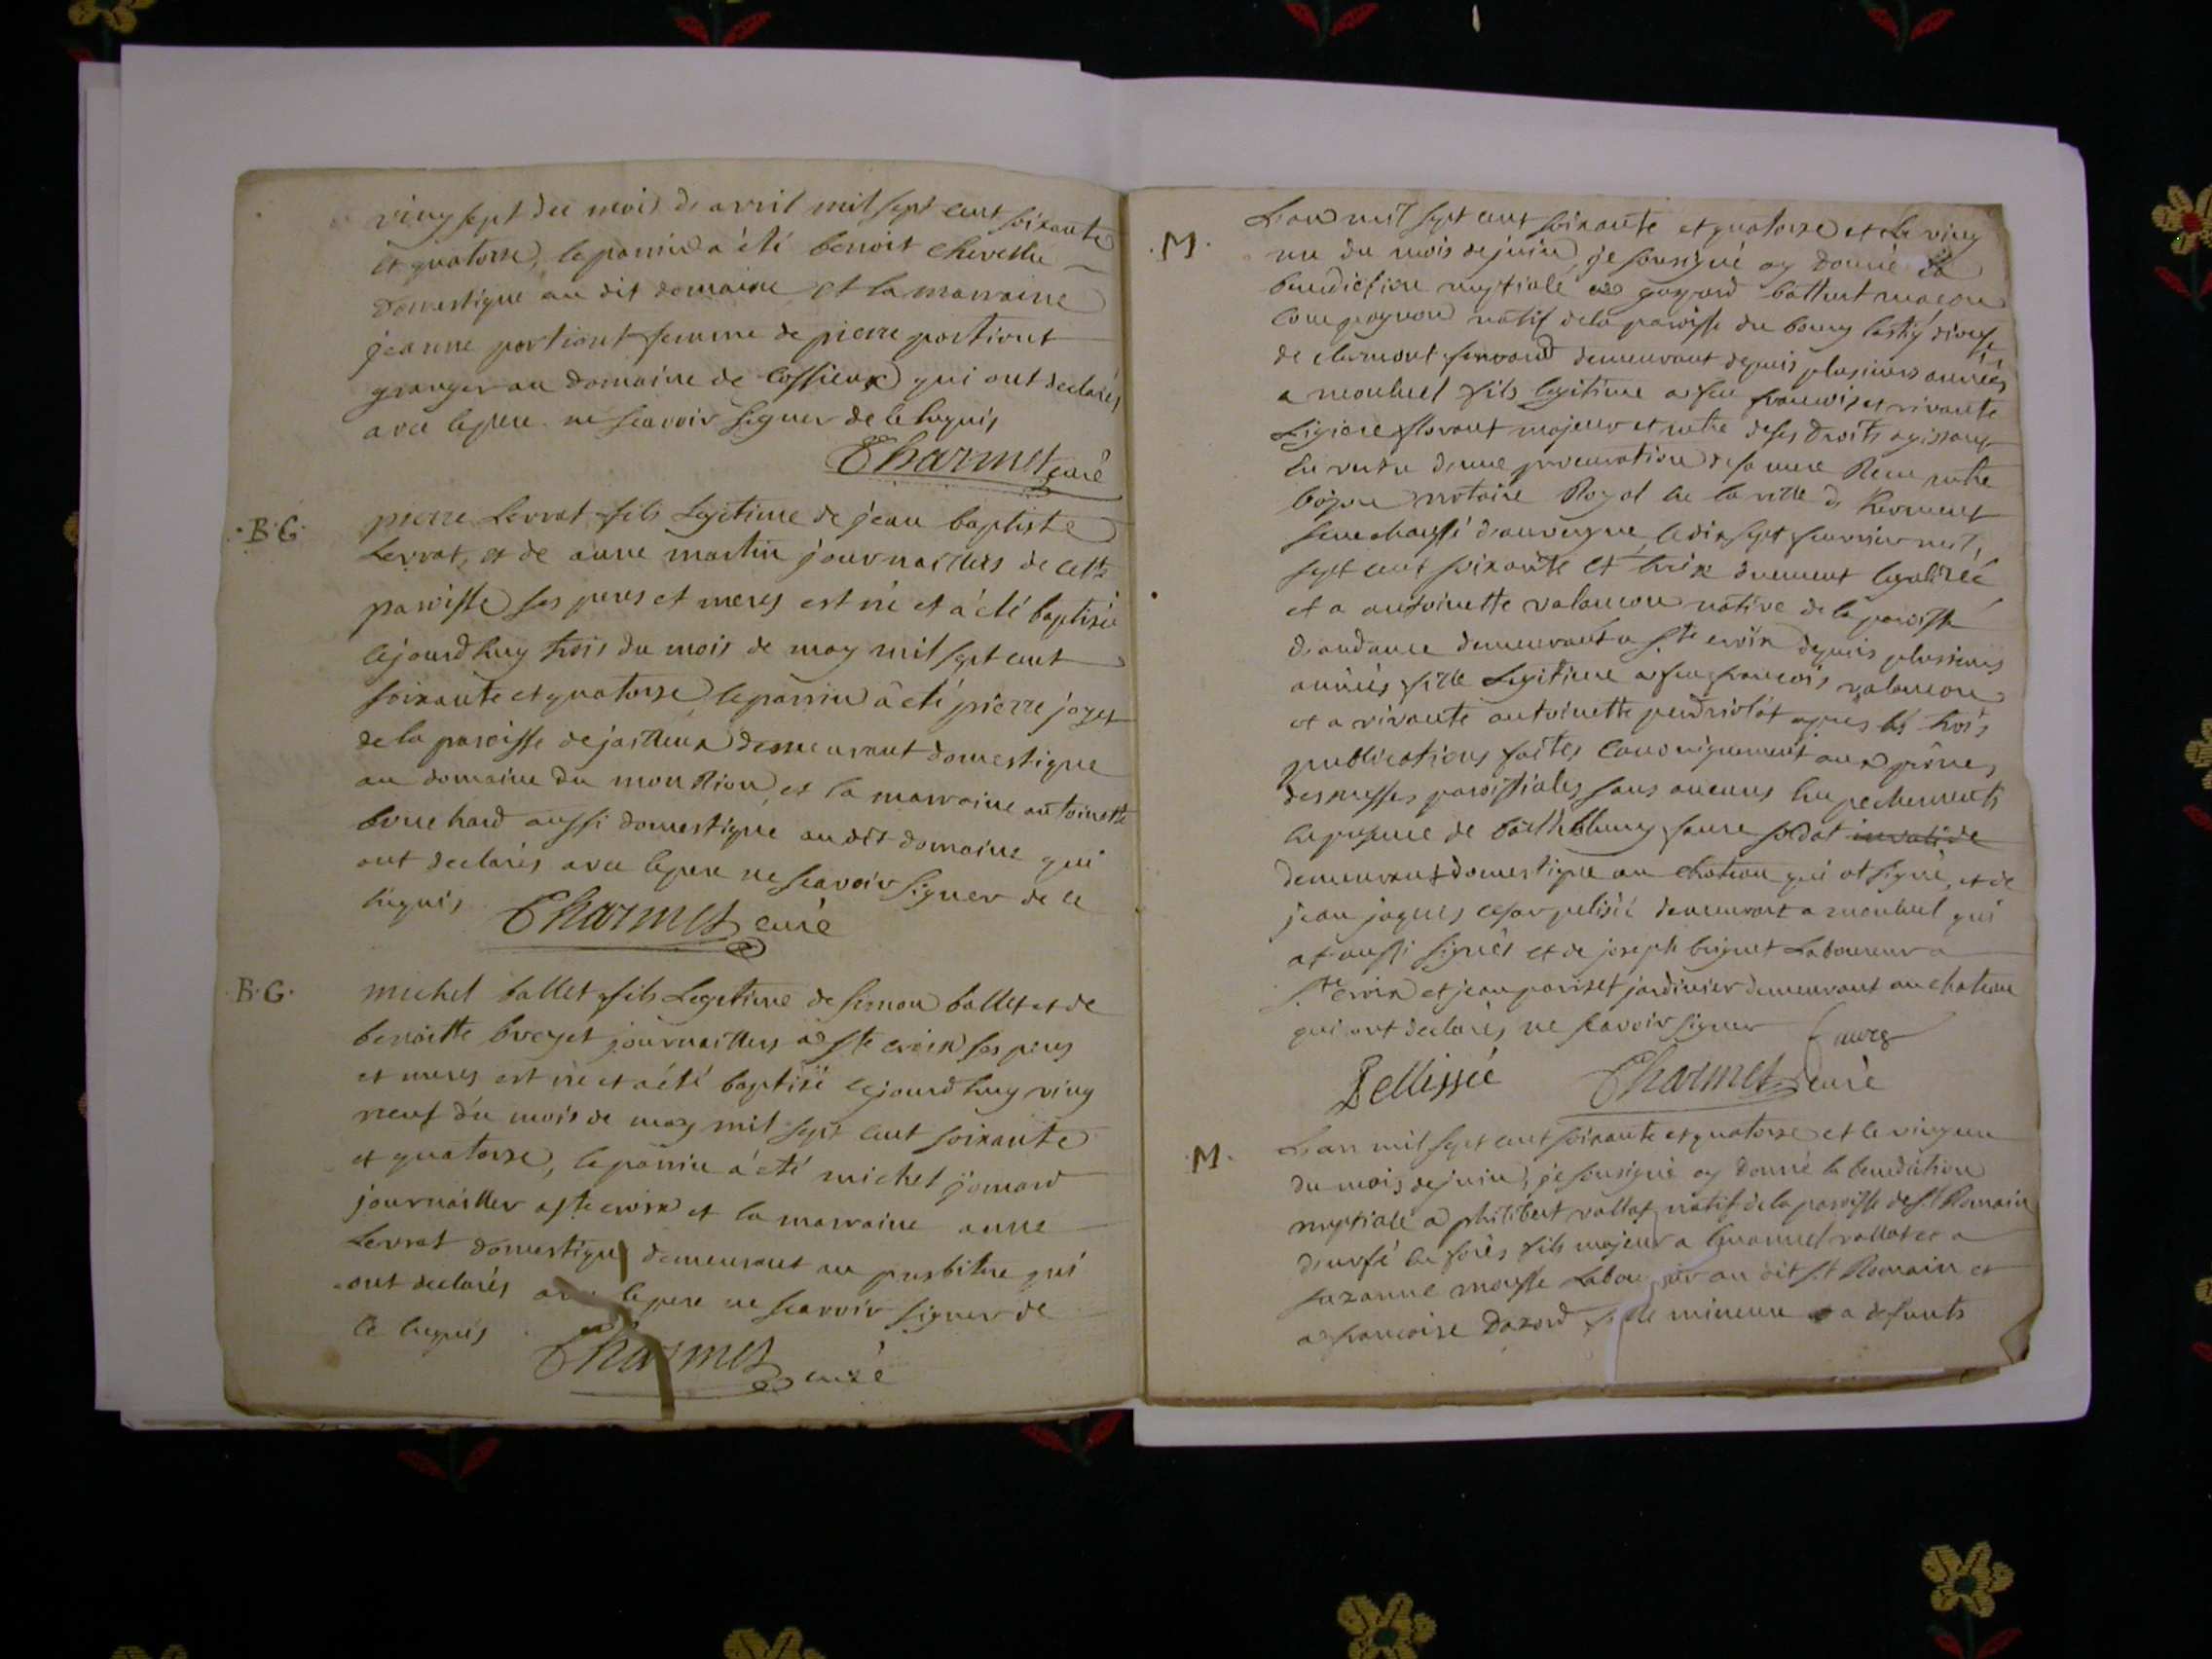 ving sept du mois d'avril mil sept cent soixante
et quatorse, le parrin a été benoit chevallu
domestique au dit domaine et la marraine
jeanne portiont femme de pierre portiont
granger au domaine de Coffieux qui ont declarés
avec le pere ne scavoir signer de ce requis
Charmet curé
B.G. pierre Levrat fils Legitime de jean baptiste
Levrat, et de anne martin journailliers de cette
paroisse ses peres et meres est né et a été baptisé
cejourdhuy trois du mois de may mil sept cent
soixante et quatorse le parrin a été pierre joyet
de la paroisse de jailleux demeurant domestique
au domaine du montlion, et la marraine antoinette
bouchard aussi domestique au dit domaine qui
ont declarés avec le pere ne scavoir signer de ce
requis. Charmet curé
B.G. michel ballet fils Legitime de simon ballet et de
benoitte broyet journailliers a Ste croix ses peres
et meres est né et a été baptisé cejourdhuy ving
neuf du mois de may mil sept cent soixante
et quatorse, le parrin a été michel jomard
journaillier a Ste croix et la marraine anne
Levrat domestique demeurant au presbitere qui
ont declarés le pere ne scavoir signer de
ce requis
Charmet curé
M. L'an mil sept cent soixante et quatorse et le ving
un du mois de juin, je sousigné ay donné la
benediction nuptiale a gaspard battut maçon
compagnon natif de la paroisse du bourg lastig diocese
de clermont ferrand demeurant depuis plusieurs années
a monluel fils legitime a feu francois et vivante
Ligiere florant majeur et mtre de ses droits agissant
en vertu d'une procuration de sa mere Recue mtre
notaire Royal en la ville d'Herment
senechaussé d'auvergne, le dix sept fevrier mil
sept cent soixante et treix duement legalisée
et a antoinette valancon native de la paroisse
d'andance demeurant a Ste croix depuis plusieurs
années fille Legitime a feu francois valancon
et a vivante antoinette perdriolat apres les trois
publications faites canoniquement aux prônes
des messes paroissiales sans aucuns empechements
en presence de barthelemy faure soldat invalide
demeurant domestique au chateau qui at signé, et de
jean jaques cesar pelissié demeurant a monluel qui
at aussi signés et de joseph briguet Laboureur a
Ste croix et jean pariset jardinier demeurant au chateau
qui ont declarés ne scavoir signer faure
Pellissié Charmet curé
M. L'an mil sept cent soixante et quatorse et le ving un
du mois de juin, je sousigné ay donné la benediction
nuptiale a philibert vallat natif de la paroisse de St Romain
d'urfé en forès fils majeur a Emanuel vallat et a
suzanne mousse Labou eur au dit St Romain et
a francoise Dazord fille mineure a defunts